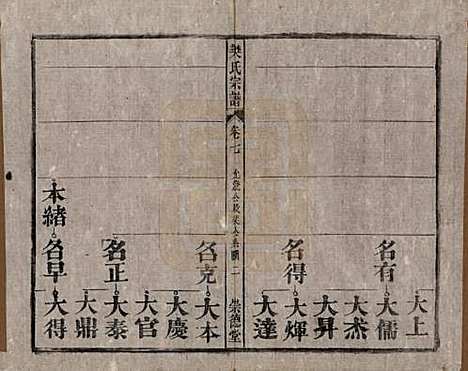 大上
名有
大儒
大杰
大昇
名得
大煇
大達
樊氏宗譜
卷七
二
崇德堂
名克
大本
大慶
大官
名正
大泰
大鼎
本緒
名早
大得